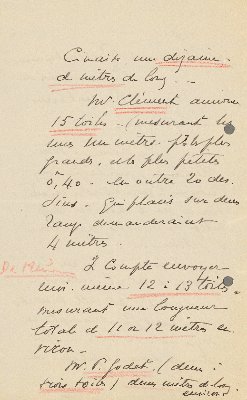 Cimaise une dizaine
de mètres de long.
Mr Clément annonce
15 toiles (mesurant les
unes un mètre plus
grandes, et les plus petites
0m,40. En outre 20 des-
sins. Qui placés sur deux
rangs demanderaient
4 mètres.
Je compte envoyer
moi-même 12 à 13 toiles
mesurant une longueur
totale de 11 ou 12 mètres en-
viron.
Mr P. Godet (deux à
trois toiles) deux mètres de long
environ)